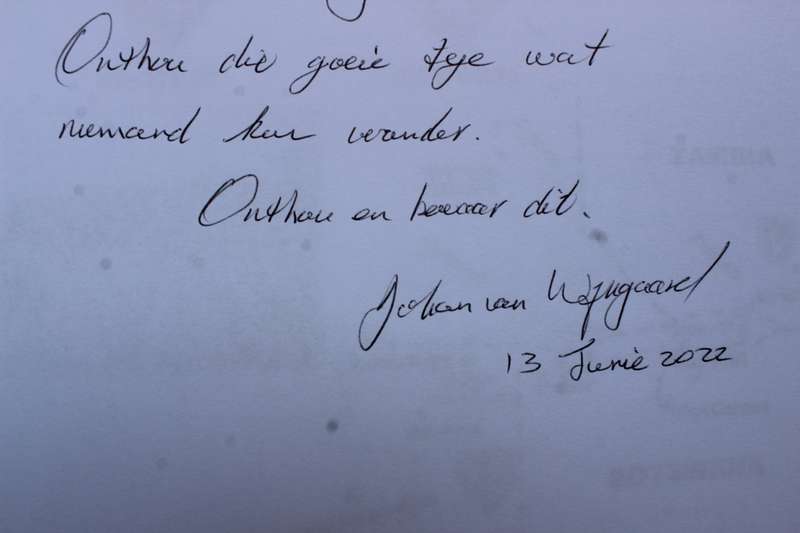 Onthou die goeie tye wat
niemand kan verander.
Onthou en bewaar dit.
Johan van Wyngaard
13 Junie 2022